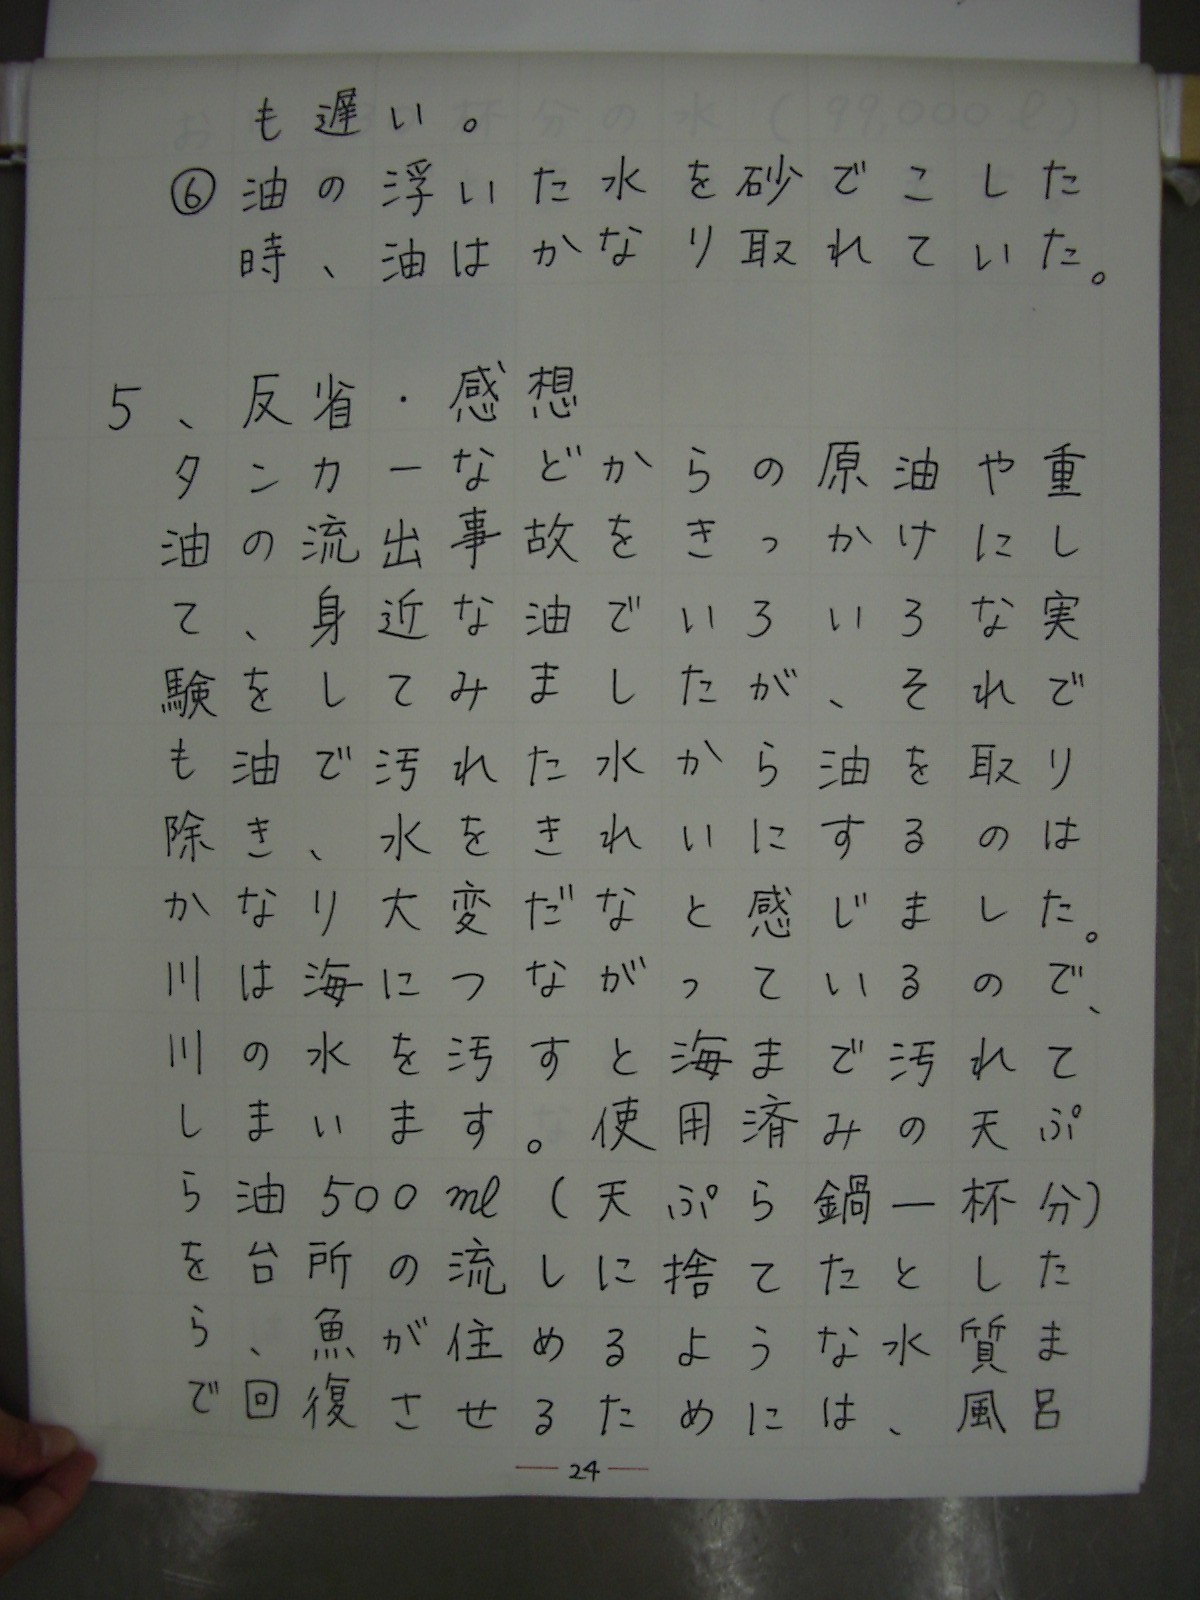 も遅い。
⑥油の浮いた水を砂でこした
時、油はかなり取れていた。
5、反省・感想
タンカーなどからの原油や重
油の流出事故をきっかけにし
て、身近な油でいろいろな実
験をしてみましたが、それで
も油で汚れた水から油を取り
除き、水をきれいにするのは
かなり大変だなと感じました。
川は海につながっているので、
川の水を汚すと海まで汚れて
しまいます。使用済みの天ぷ
ら油500ml(天ぷら鍋一杯分)
を台所の流しに捨てたとした
ら、魚が住めるような水質ま
で回復させるためには、風呂
24